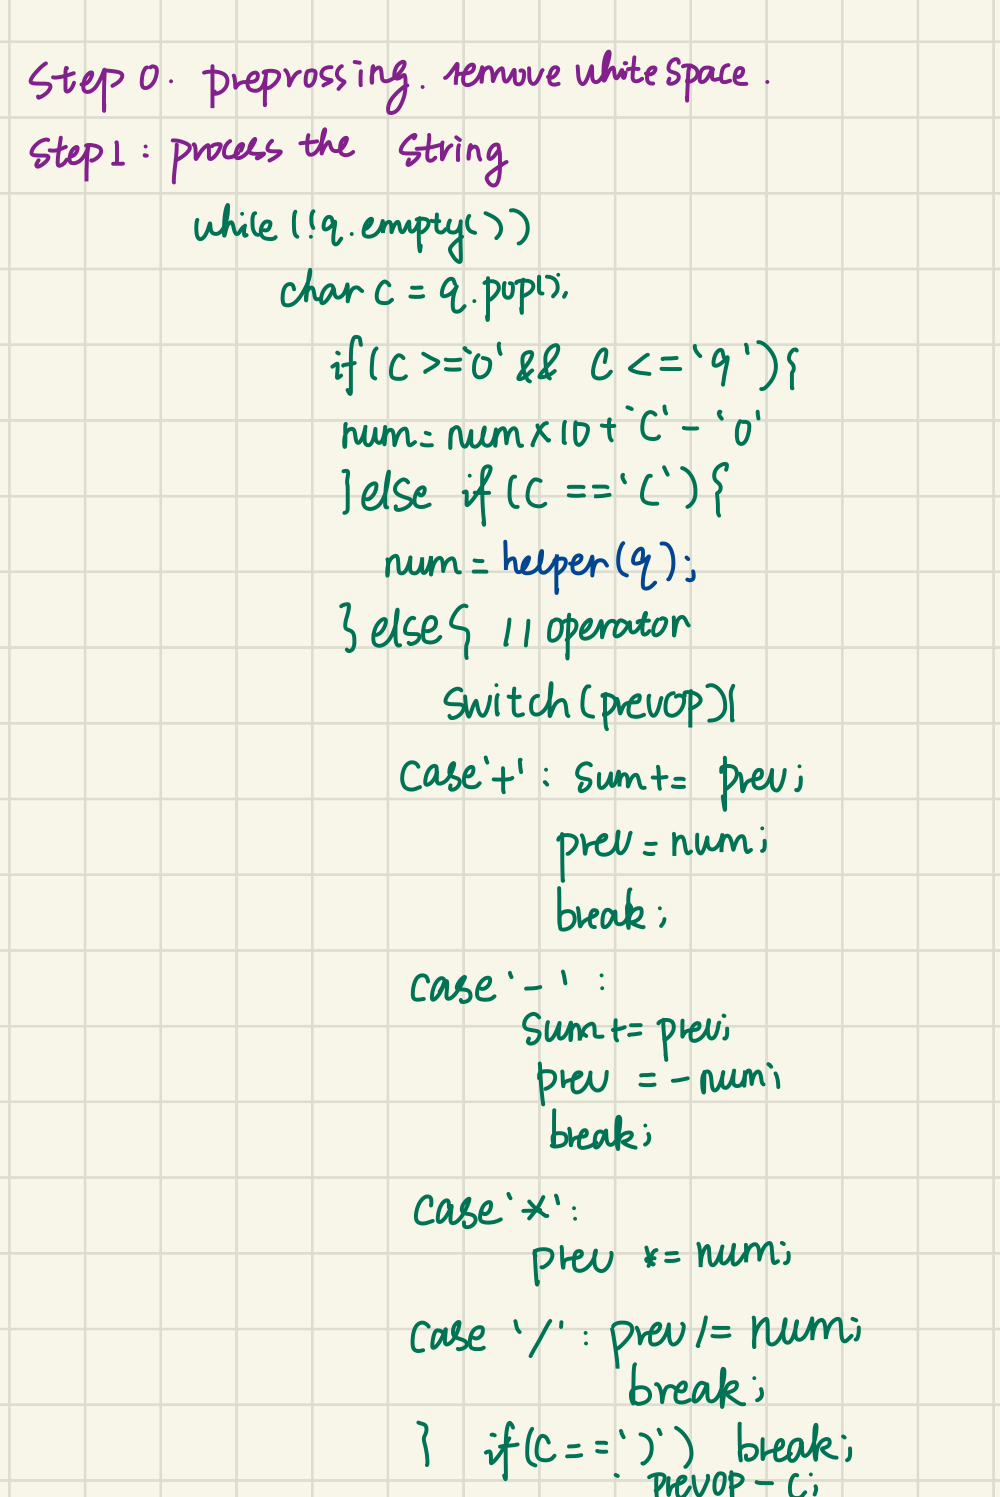 Step 0. preprossing. remove white space.
Step 1 : process the String
while (!q.empty())
char c = q.pop();
if (c >= '0' && c <= '9') {
num = num × 10 + 'c' - '0'
} else if (c == '(') {
num = helper(q);
} else { // operator
switch (prevop) {
case '+' : sum += prev;
prev = num;
break;
case '-' :
sum += prev;
prev = - num;
break;
case '*' :
prev *= num;
case '/' : prev /= num;
break;
} if (c == ')') break;
prevop - c;